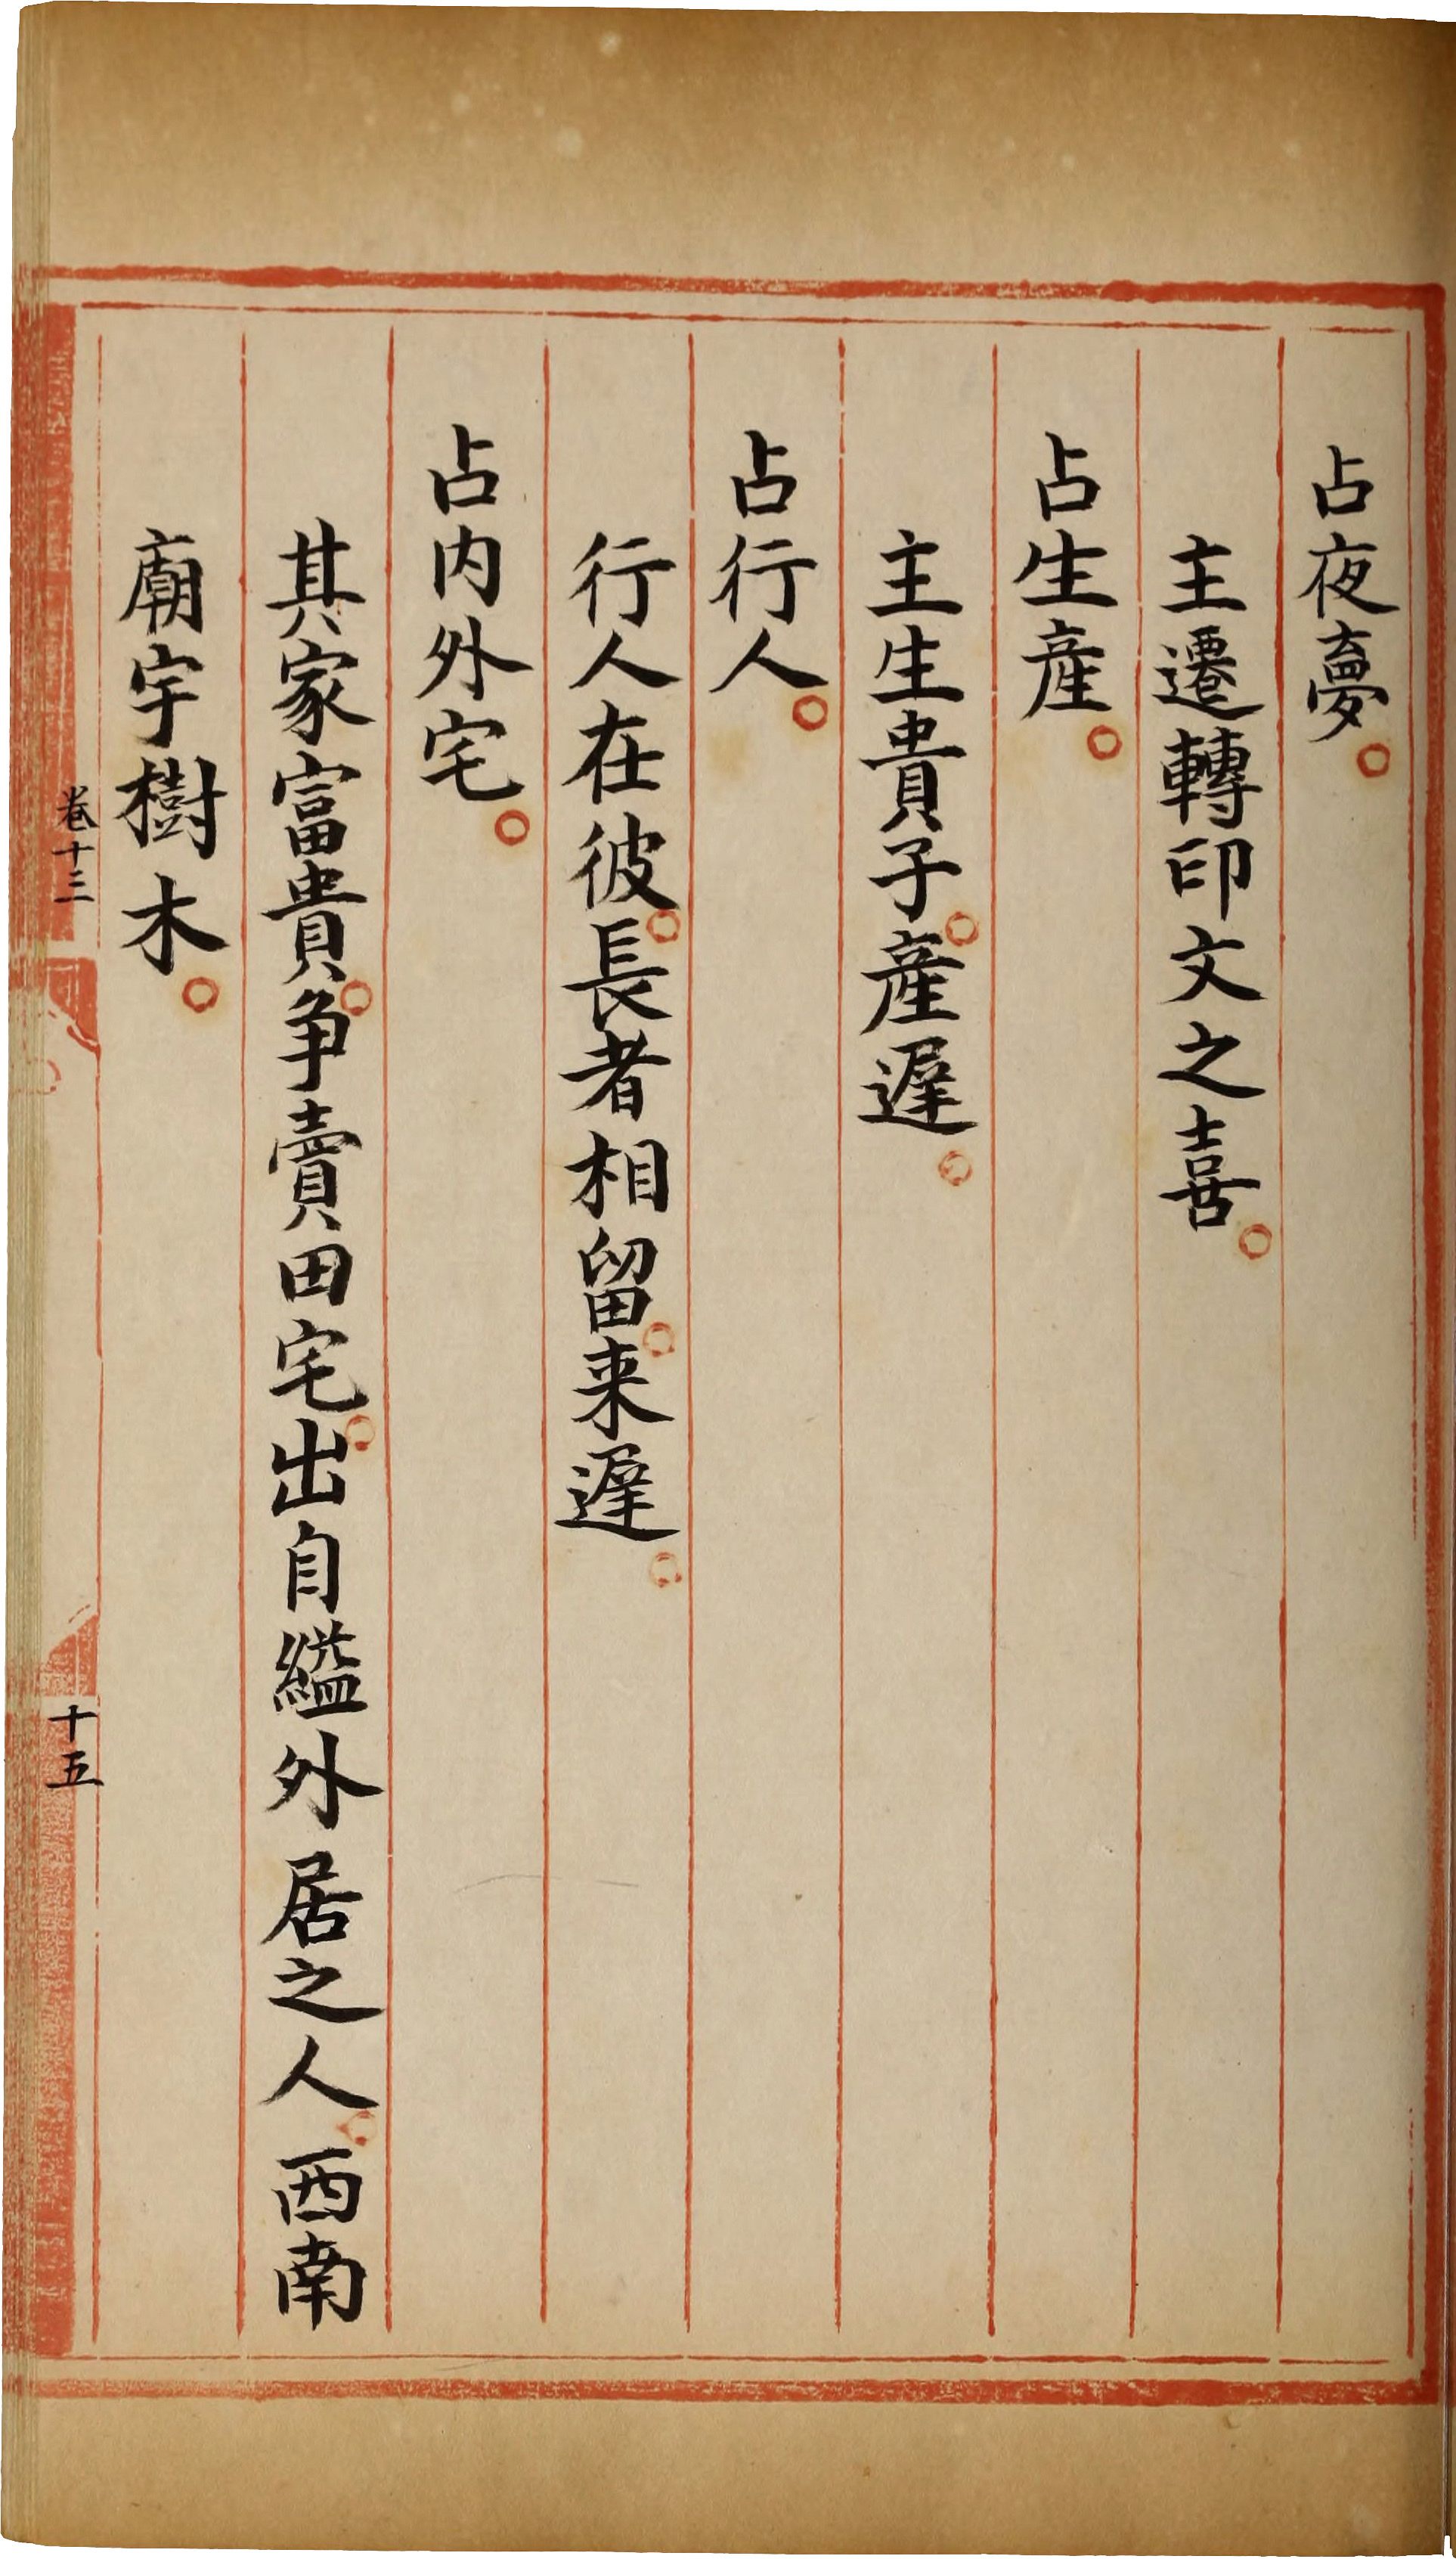 占夜夢。
主遷轉印文之喜。
占生産。
主生貴子。産遲。
占行人。
行人在彼。長者相留。来遲。
占内外宅。
其家富貴。争賣田宅。出自縊外居之人。西南
廟宇樹木。
卷十三
十五